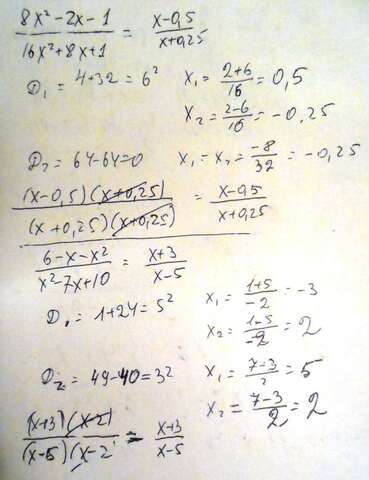 (8x² - 2x - 1)/(16x² + 8x + 1) = (x - 0,5)/(x + 0,25)
D₁ = 4 + 32 = 6² x₁ = (2+6)/16 = 0,5
x₂ = (2-6)/16 = -0,25
D₂ = 64 - 64 = 0 x₁ = x₂ = -8/32 = -0,25
(x - 0,5)(x + 0,25)/(x + 0,25)(x + 0,25) = (x - 0,5)/(x + 0,25)
(6 - x - x²)/(x² - 7x + 10) = (x + 3)/(x - 5)
D₁ = 1 + 24 = 5² x₁ = (1+5)/-2 = -3
x₂ = (1-5)/-2 = 2
D₂ = 49 - 40 = 3² x₁ = (7-3)/2 = 5
x₂ = (7-3)/2 = 2
(x+3)(x-2)/(x-5)(x-2) = (x+3)/(x-5)